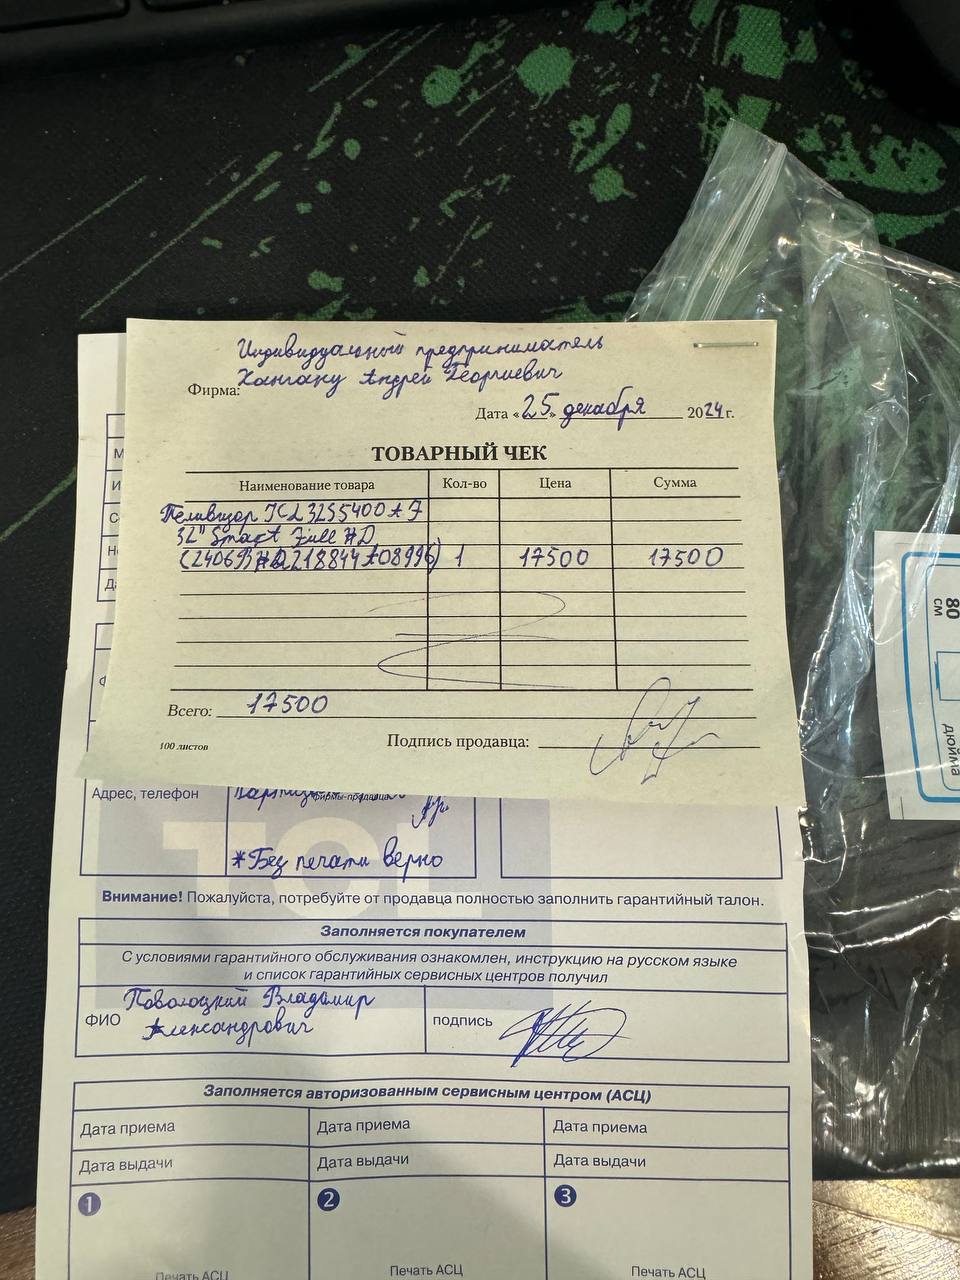 Индивидуальный предприниматель
Фирма: Хангану Андрей Георгиевич
Дата «25» декабря 2024 г.
ТОВАРНЫЙ ЧЕК
Наименование товара Кол-во Цена Сумма
Телевизор TCL 32S5400AF
32" Smart Full HD
1 17500 17500
Всего: 17500
100 листов Подпись продавца:
Адрес, телефон
фирмы-продавца
*Без печати верно
Внимание! Пожалуйста, потребуйте от продавца полностью заполнить гарантийный талон.
Заполняется покупателем
С условиями гарантийного обслуживания ознакомлен, инструкцию на русском языке
и список гарантийных сервисных центров получил
ФИО Поволоцкий Владимир
Александрович
подпись
Заполняется авторизованным сервисным центром (АСЦ)
Дата приема Дата приема Дата приема
Дата выдачи Дата выдачи Дата выдачи
1 2 3
Печать АСЦ Печать АСЦ Печать АСЦ
80
см
дюйма
TCL